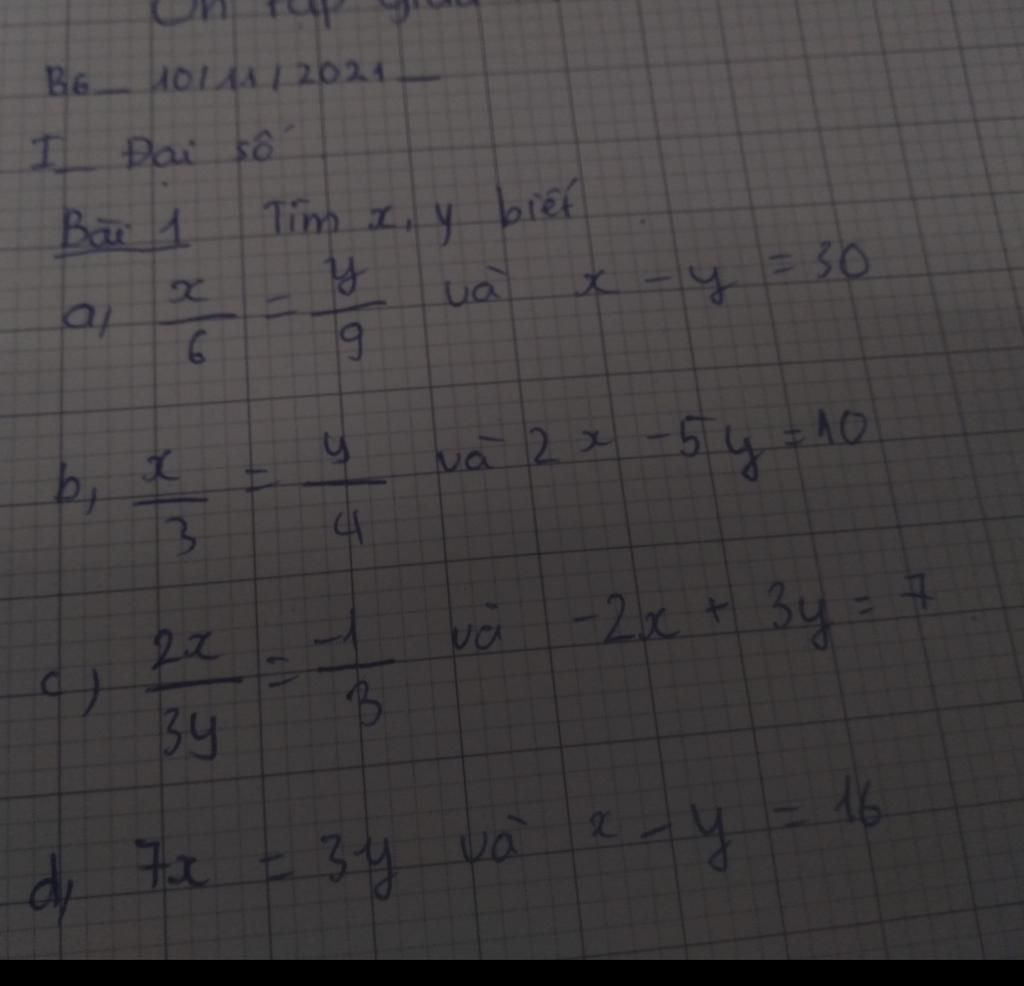 Ôn tập giữa
B6_ 10/11/2021_
I_ Đại số
Bài 1 Tìm x, y biết
a, x/6 = y/9 và x - y = 30
b, x/3 = y/4 và 2x - 5y = 10
c) 2x/3y = -1/3 và -2x + 3y = 7
d, 7x = 3y và x - y = 16